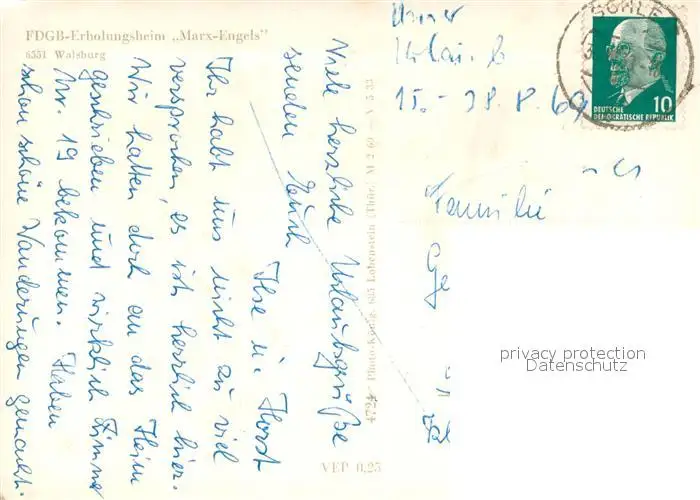 FDGB-Erholungsheim „Marx-Engels"
6551 Walsburg
Unser
Urlaub
15. - 28. 8. 69
DEUTSCHE
DEMOKRATISCHE REPUBLIK
10
Viele herzliche Urlaubsgrüße
senden Euch
Ilse u. Horst
Ihr habt uns nicht zu viel
versprochen, es ist herrlich hier.
Wir hatten doch an das Heim
geschrieben und wirklich Zimmer
Nr. 19 bekommen. Haben
schon schöne Wanderungen gemacht.
4724 Photo-König, 685 Lobenstein (Thür.) M 2 69 – V 5 33
VEP 0,25
Familie
Ge
privacy protection
Datenschutz